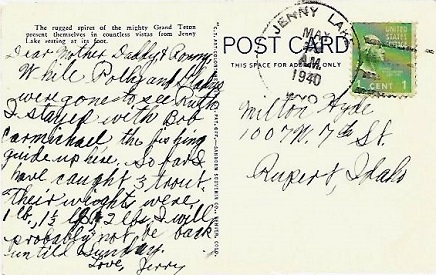 The rugged spires of the mighty Grand Teton
present themselves in countless vistas from Jenny
Lake resting at its foot.
Dear Mother Daddy & Ronny
While Polly and
were gone to see Ruth
I stayed with Bob
Carmichael the fishing
guide up here. So far I
have caught 3 trout.
Their weights were,
1 lb, 1½ lb & 2 lbs. I will
probably not be back
until Sunday.
Love, Jerry
POST CARD
THIS SPACE FOR ADDRESS ONLY
JENNY LAKE
MAY
A.M.
1940
WYO.
UNITED STATES
CENT 1
Milton Hyde
1007 N. 7th St.
Rupert, Idaho